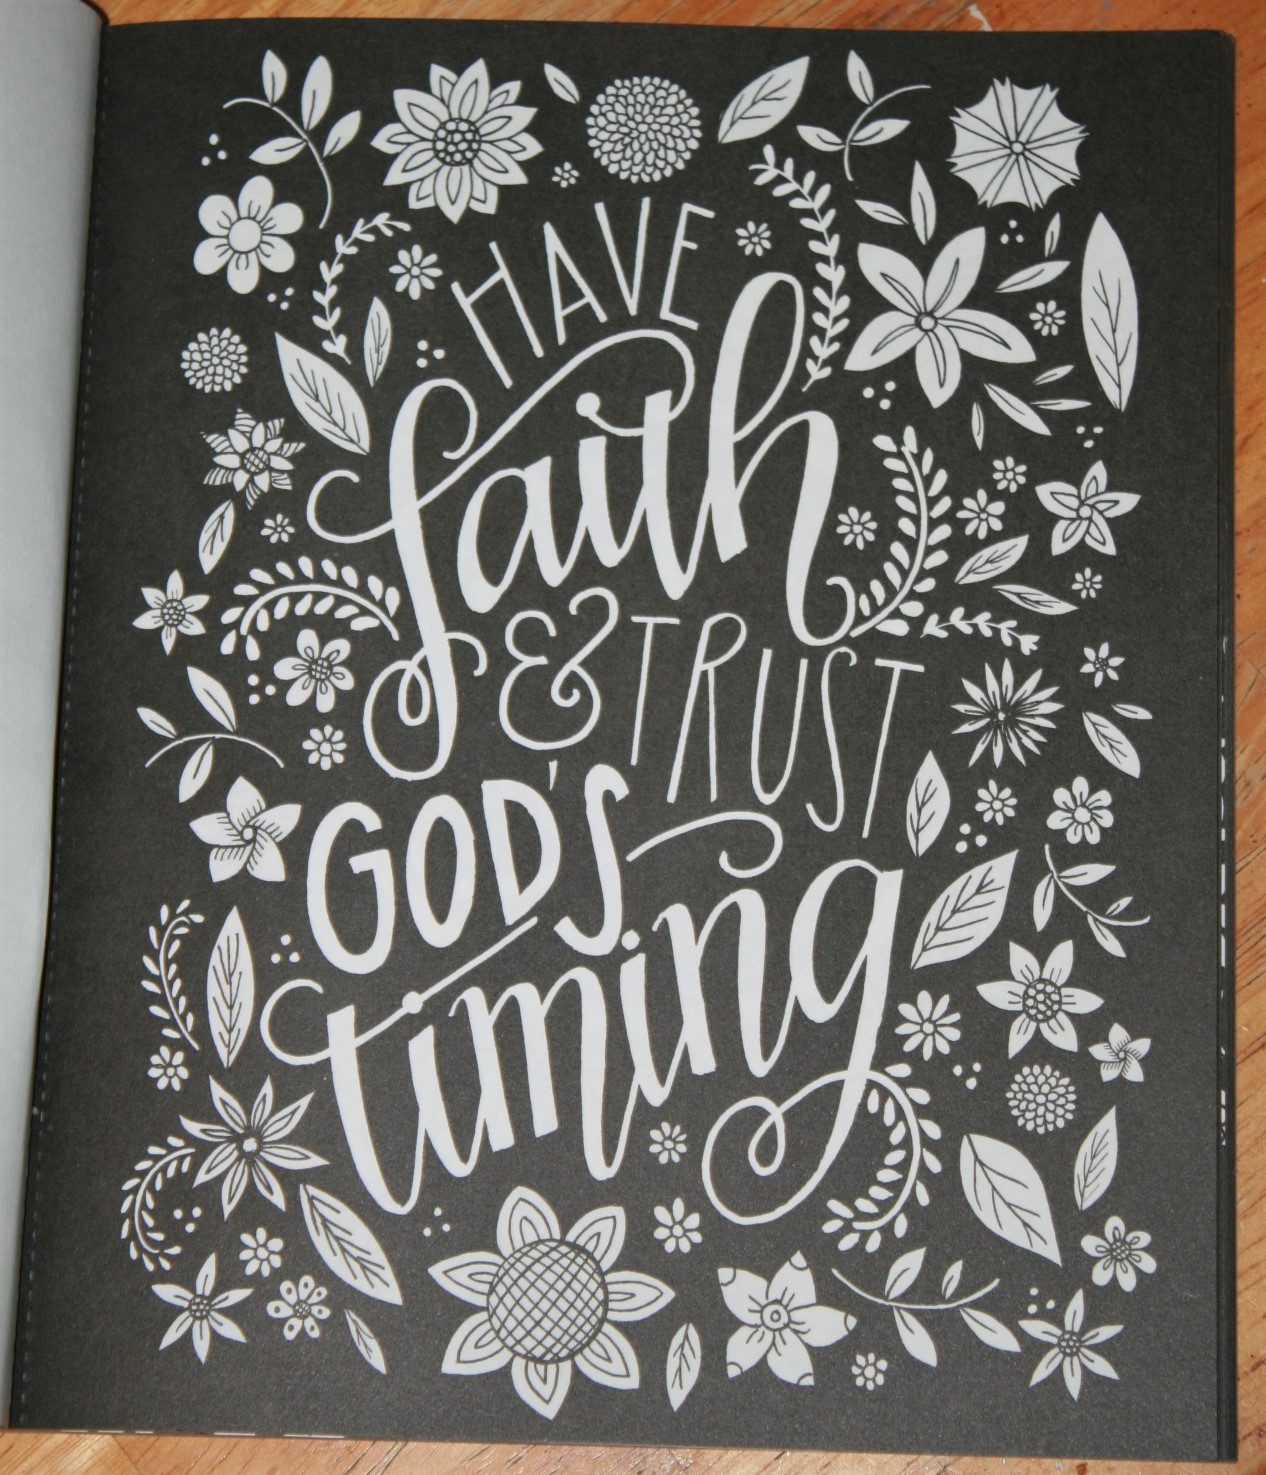 HAVE
faith
& TRUST
GOD'S
timing